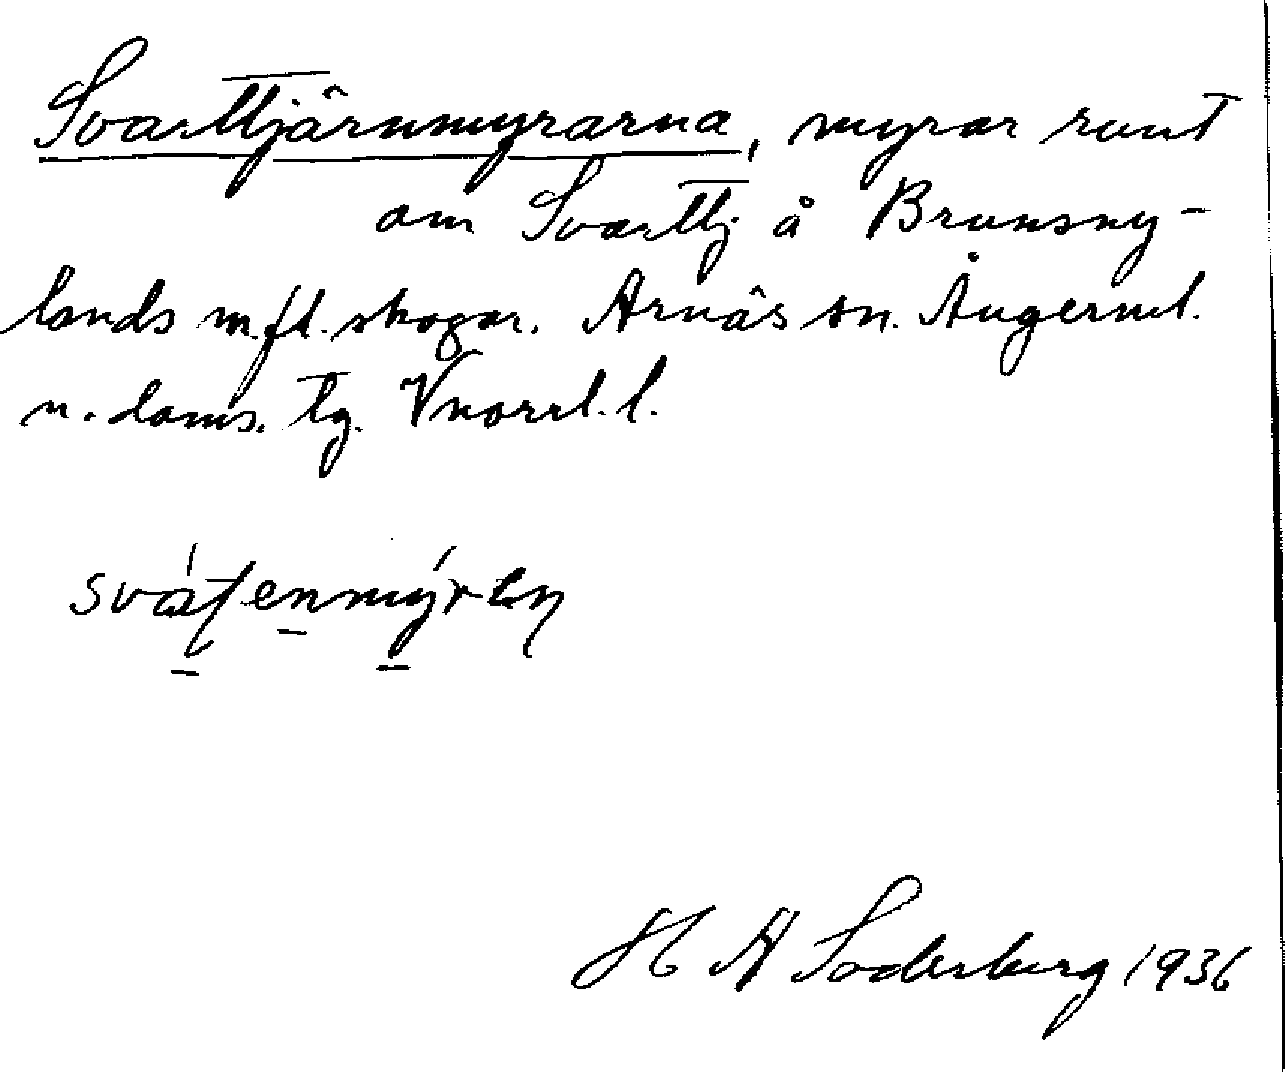 Svarttjärnmyrarna, myrar runt
om Svarttj å Brunsny-
lands m.fl. skogar. Arnäs sn. Ångerml.
n. doms. tg. Vnorrl. l.
H A Söderberg 1936